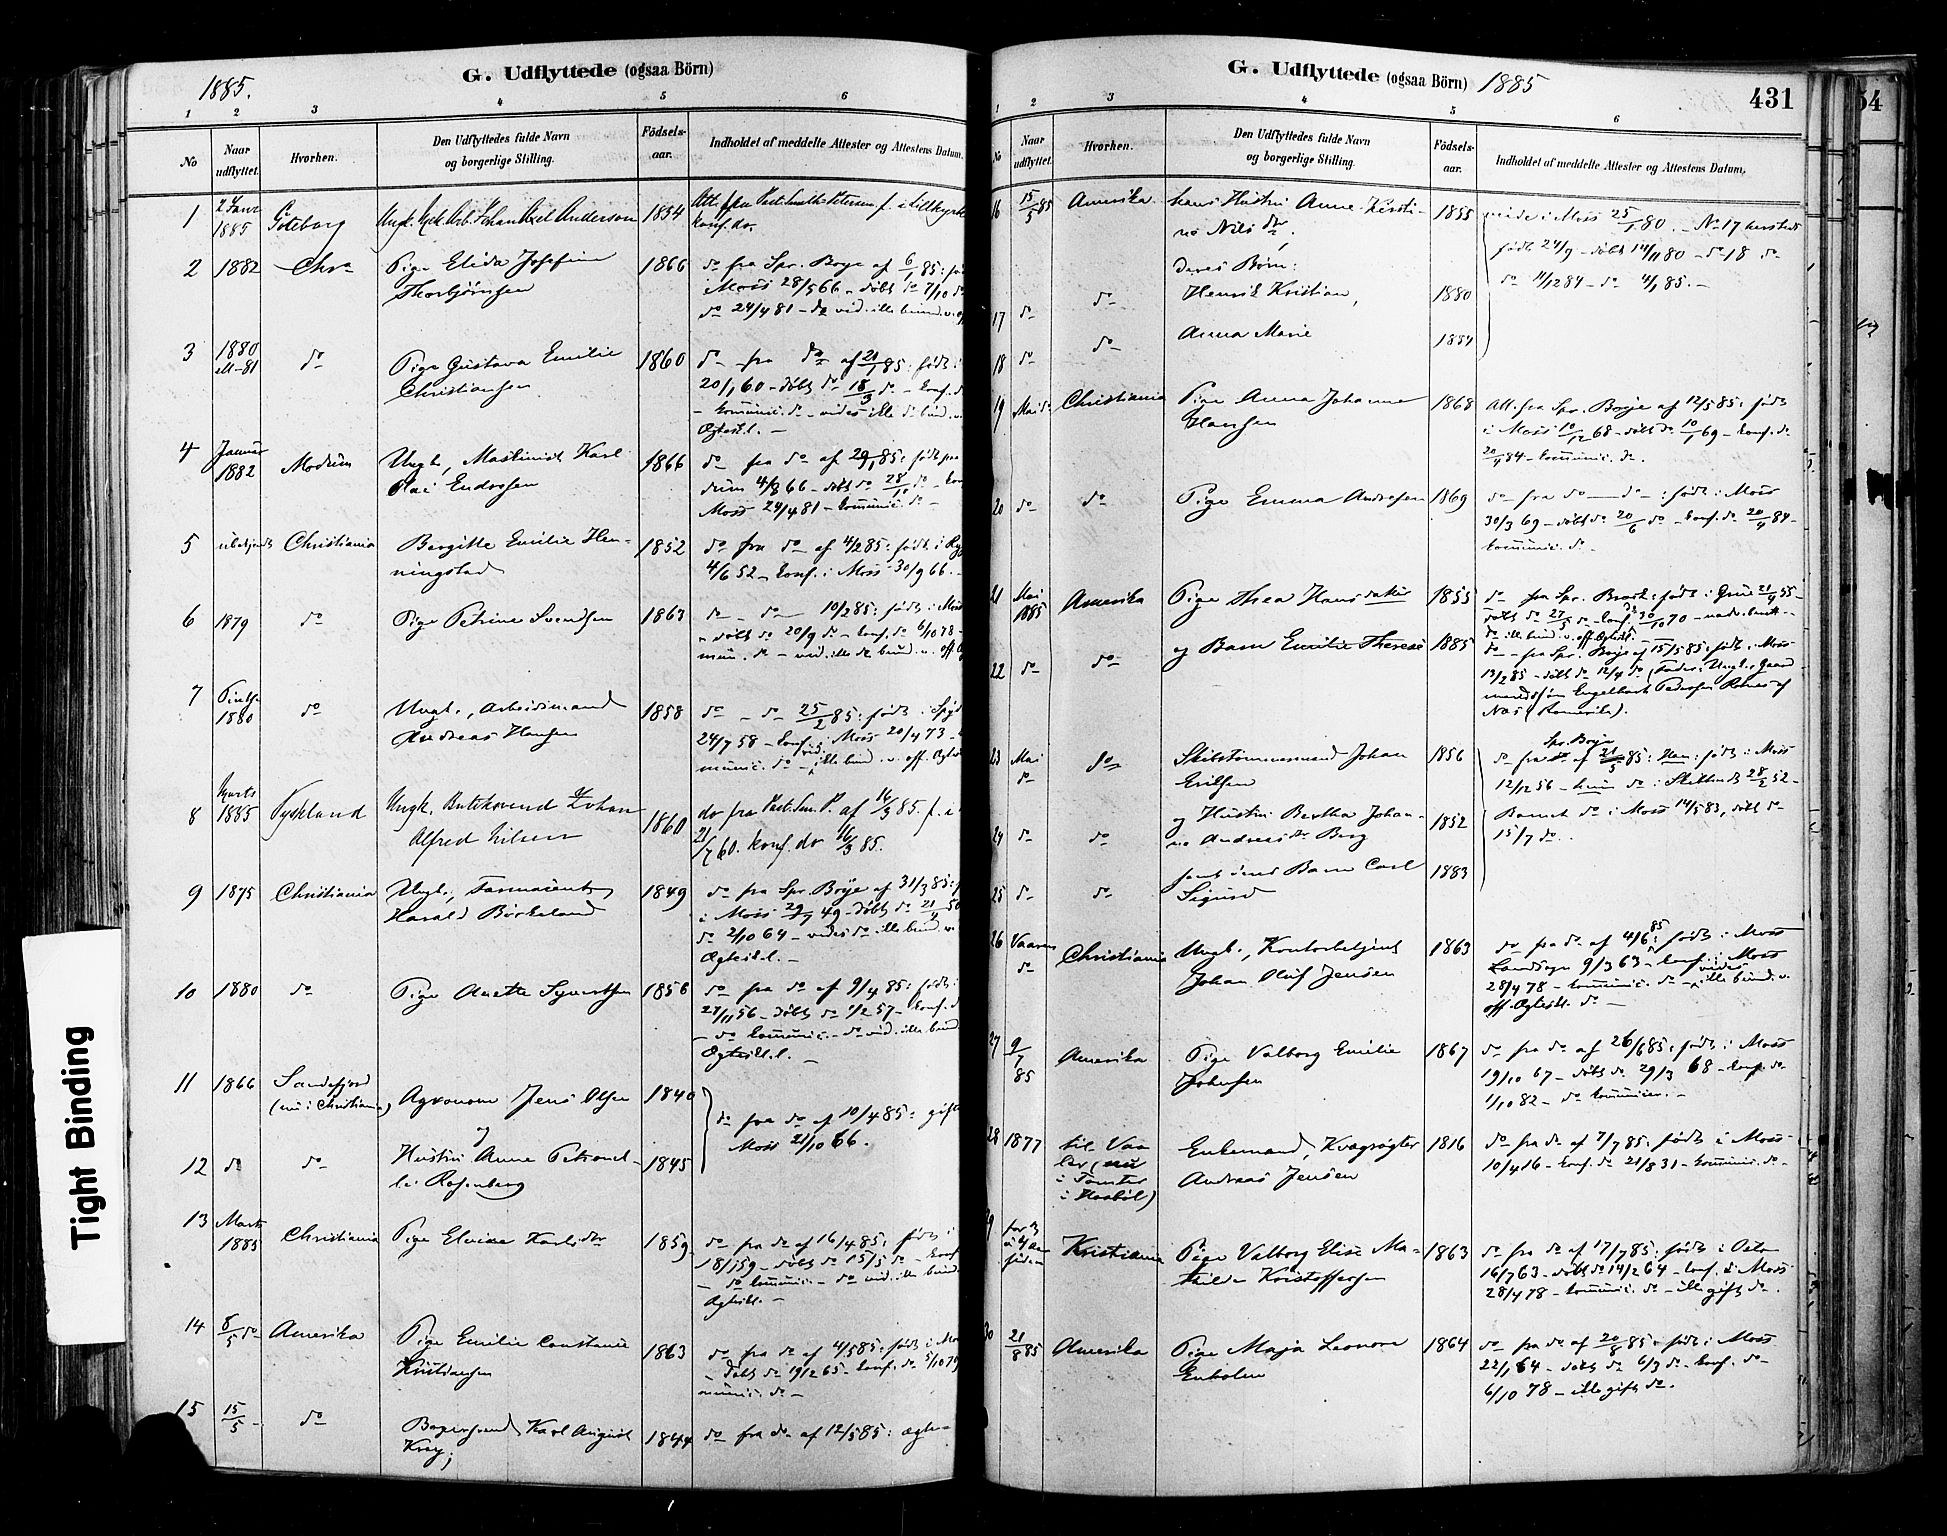 1885.
G. Udflyttede (ogsaa Börn)
1 2 3 4 5 6
No
Naar udflyttet.
Hvorhen.
Den Udflyttedes fulde Navn og borgerlige Stilling.
Födsels-aar.
Indholdet af meddelte Attester og Attestens Datum.
1 2 Janr 1885 Göteborg Ungk. Anderson 1834
konf. do.
2 1882 Chra Pige Elida Josefine 1866 do fra Spr. Borje af 6/1 85: 
Thorbjörnsen Moss 28/5 66 - döbt do 7/10 do
do 24/4 81 - do vid. ikke bund. v. off
3 1880 à 81 do Pige Gustava Emilie 1860 do fra do af 21/1 85: födt i
Christiansen 20/1 60 - döbt do 18/3 do - konf. do
- kommunic. do - vides ikke do bund. v.
Ægteskl. -
4 Januar 1882 Modum Ungk., Maskinist Karl 1866 do fra do af 29/1 85: födt paa
Endresen dum 4/8 66 - döbt do 28/10 do -
Moss 24/4 81 - kommunic. do -
5 ubekjendt Christiania Bergitte Emilie Hen- 1852 do fra do af 4/2 85: födt i Ryg
ningstad 4/6 52 - konf. i Moss 30/9 66. -
6 1879 do Pige Petrine Svendsen 1863 do - do - 10/2 85: födt i Moss
- döbt do 20/9 do - konf. do 6/10 78 -
mun. do - vid. ikke do bund. v. off
7 1880 do Ungk., Arbeidsmand 1858 do - do 25/2 85: födt i Spyd
Andreas Hansen 24/7 58 - konf. i Moss 20/4 73 -
munic. do - vid. ikke bund. v. off. Ægtesk
8 Marts 1885 Tyskland Ungk. Johan 1860 do fra Past. Sm. P. af 16/3 85. f. i
Alfred Nilsen 21/7 60. konf. do 16/3 85.
9 1875 Christiania Ungk., Farmaceut 1849 do fra Spr. Borje af 31/3 85:
Harald Börkeland i Moss 29/7 49 - döbt do 21/4 50
do 2/10 64 - vides do ikke bund. v.
Ægteskl. -
10 1880 do Pige Anette Syvertsen 1856 do fra do af 9/4 85: födt i
27/11 56 - döbt do 1/2 57 - konf. d
- do kommunic. - do vid. ikke bund.
Ægteskl. -
11 1866 Sandefjord (nu i Christiania) Agronom Jens Olsen 1840 do fra do af 10/4 85: gift
og Moss 21/10 66.
12 do do Hustru Anne Petronel- 1845
le Rosenberg
13 Marts 1885 Christiania Pige Elvine Karlsdtr 1859 do fra do af 16/4 85: födt i
18/1 59 - döbt do 15/5 do - konf
- do kommunic. - do vid. ikke bund
Ægteskl. -
14 8/5 do Amerika Pige Emilie Constance 1863 do fra do af 4/5 85: födt i Mo
Kristiansen döbt do 19/2 65 - konf. do 5/10 79
munic. do -
15 15/5 - do Bagersvend Karl August 1844 do fra do af 12/5 85: ægte-
Krog;
G. Udflyttede (ogsaa Börn) 1885
431
54
1 2 3 4 5 6
No
Naar udflyttet.
Hvorhen.
Den Udflyttedes fulde Navn og borgerlige Stilling.
Födsels-aar.
Indholdet af meddelte Attester og Attestens Datum.
16 15/5 85 Amerika hans Hustru Anne Kirsti- 1855 viede i Moss 25/1 80. - No 17
ne Nilsdtr, födt 24/9 - döbt 14/11 80 - do 18 do
deres Börn: do 4/12 84 - do 4/1 85. -
17 do do Henrik Kristian, 1880
18 do do Anna Marie 1884
19 Mai do Christiania Pige Anna Johanne 1868 Att. fra Spr. Borje af 12/5 85: födt
Hansen i Moss 10/12 68 - döbt do 10/1 69 - konf. do
20/4 84 - kommunic. do.
20 do do Pige Emma Andresen 1869 do fra do - do - : födt i Moss
30/3 69 - döbt do 20/6 do - konf. do 20/4 84 -
kommunic. do -
21 Mai 1885 Amerika Pige Thea Hansdatter 1855 do fra Spr. : födt i Grue 21/4 55 -
döbt do 27/5 do - konf. do 30/10 70 -
do ikke bund. v. off. Ægteskl. -
22 do do og Barn Emilie Therese 1885 do - fra Spr. Borje af 15/5 85: födt i Moss
13/2 85 - döbt do 12/4 do (Fader: Ungk., Gaard
mandssön Engelbart Pedersen af
Næs (Romerike).
23 Mai do do Skibstömmermand Johan 1856 do fra Spr. Borje af 21/5 85: Han: födt i Moss
Erilsen 12/12 56 - hun do i 28/2 52 -
24 do do og Hustru Bertha Johan- 1852 Barnet do i Moss 14/5 83, döbt do
ne Andreasdtr Berg 15/7 do.
25 do do samt deres Barn Carl 1883
Sigurd
26 Vaaren do Christiania Ungk., Kontorbetjent 1863 do fra do af 4/6 85: födt i Moss
Johan Oluf Jensen Landsogn 9/3 63 - konf. i Moss
28/4 78 - kommunic. do - vides ikke bund. v.
off. Ægteskl. do -
27 9/7 85 Amerika Pige Valborg Emilie 1867 do fra do af 26/6 85: födt i Moss
Johnsen 19/10 67 - döbt do 29/3 68 - konf. do
1/10 82 - do kommunic. -
28 1877 til Vaa- Enkemand, Kvægrögter 1816 do fra do af 7/7 85: födt i Moss
ler (nu Andreas Jensen 10/4 16 - konf. do 21/8 31 - kommunic. do -
i Tomter
i Haaböl)
29 for 3 à 4 Aar siden Kristiania Pige Valborg Elise Ma- 1863 do fra do af 17/7 85: födt i Oslo
thilde Kristoffersen 16/7 63 - döbt do 14/2 64 - konf. i Moss
28/4 78 - kommunic. do - ikke gift do.
30 21/8 85 Amerika Pige Maja Leonore 1864 do fra do af 20/8 85: födt i Moss
Enholm 22/1 64 - döbt do 6/3 do - konf. do -
6/10 78 - ikke gift do.
Tight Binding